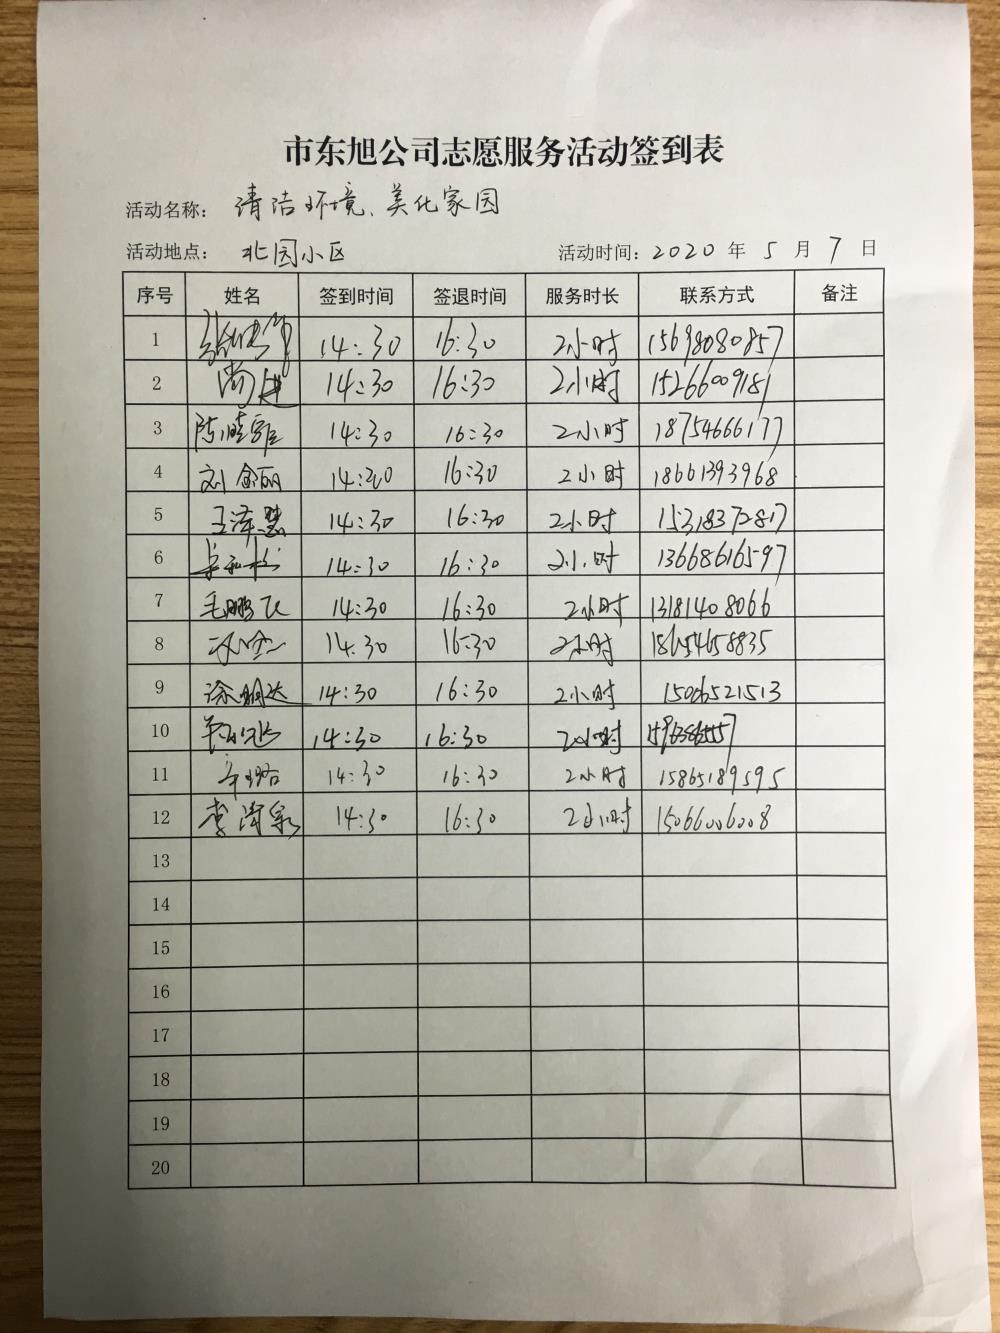 市东旭公司志愿服务活动签到表
活动名称: 清洁环境、美化家园
活动地点: 北园小区 活动时间: 2020 年 5 月 7 日
序号 姓名 签到时间 签退时间 服务时长 联系方式 备注
1 14:30 16:30 2小时 15698080857
2 尚进 14:30 16:30 2小时 15266009181
3 陈晓雅 14:30 16:30 2小时 18754666177
4 刘鑫丽 14:30 16:30 2小时 18661393968
5 王泽慧 14:30 16:30 2小时 15318372817
6 14:30 16:30 2小时 13668616597
7 毛鹏飞 14:30 16:30 2小时 13181408066
8 14:30 16:30 2小时 18654658835
9 徐明达 14:30 16:30 2小时 15006521513
10 14:30 16:30 2小时
11 14:30 16:30 2小时 15865189595
12 李海泉 14:30 16:30 2小时 15066006008
13
14
15
16
17
18
19
20